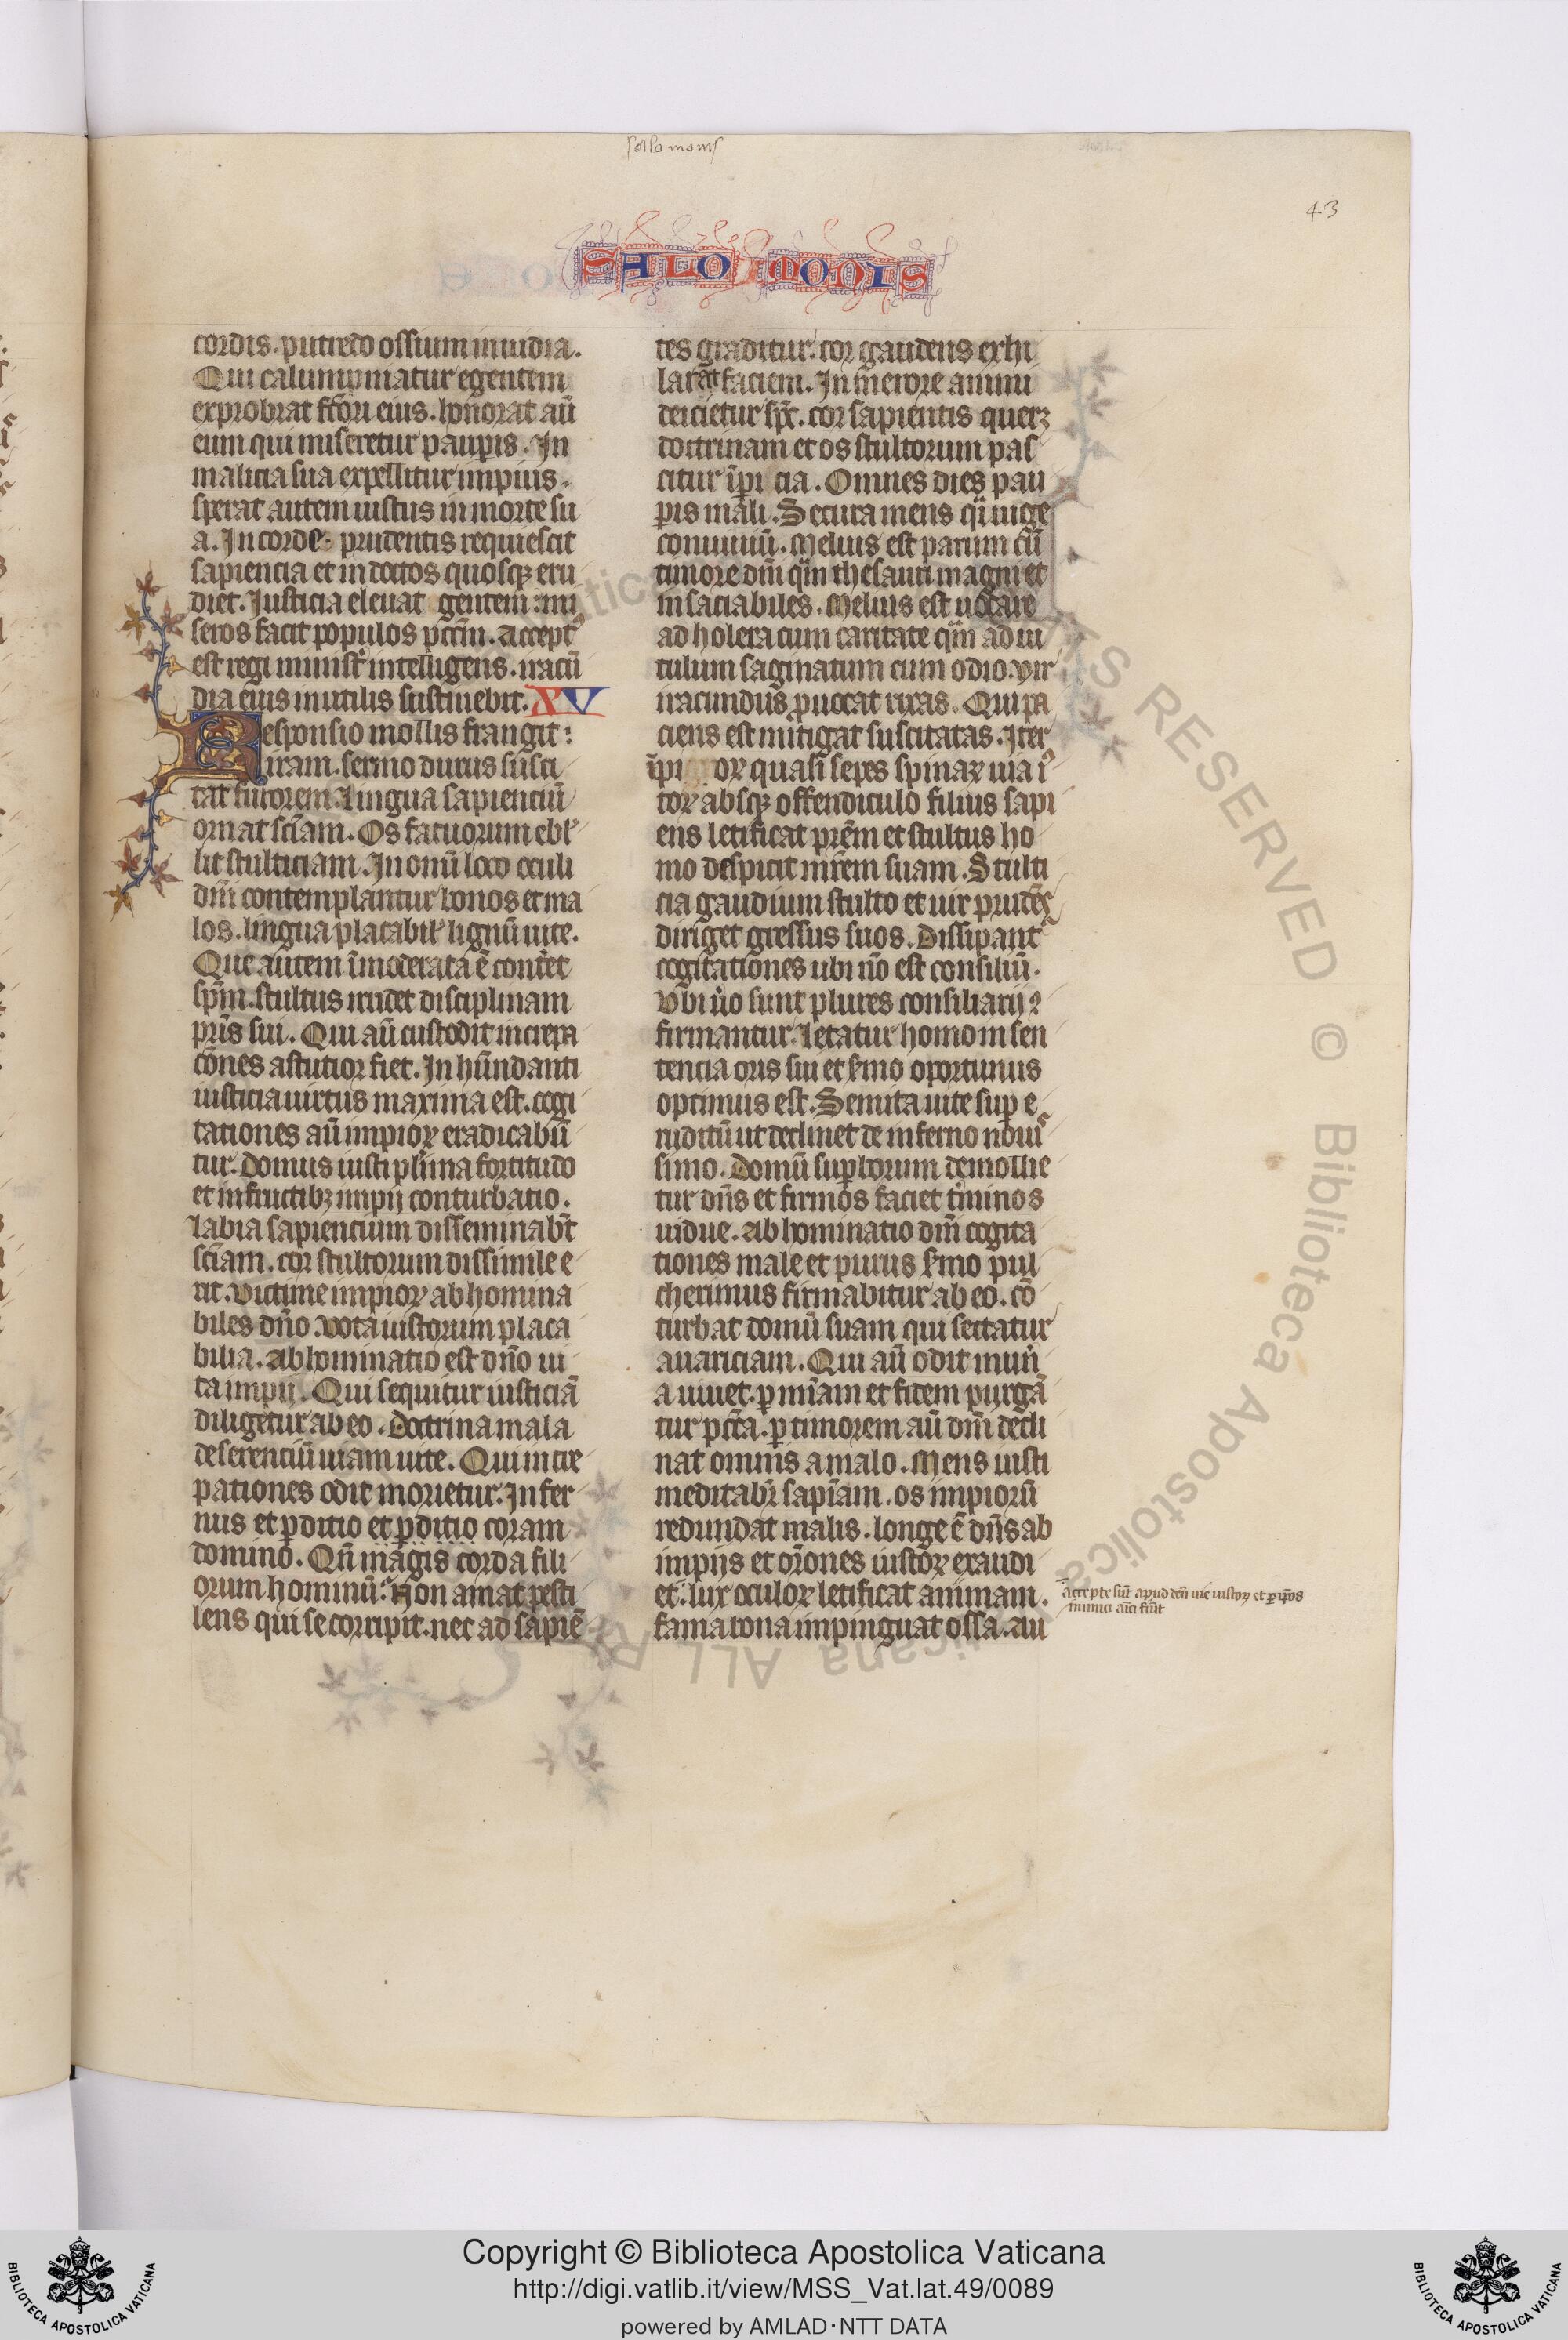 sallomonis
43
SALOMONIS
cordis. putredo ossium inuidia.
Qui calumpniatur egentem
exprobrat fc̄ori eius. honorat aū
eum qui miseretur pauꝑis. In
malicia sua expellitur impius.
sperat autem iustus in morte su
a. In corde prudentis requiescit
sapiencia et indoctos quosqꝫ eru
diet. Iusticia eleuat gentem: mi
seros facit populos pcc̄m. accept᷒
est regi minist̉ intelligens. iracū
dia eius inutilis sustinebit. XV
Responsio mollis frangit:
iram. sermo durus susci
tat furorem. Lingua sapienciū
ornat sc̄iam. Os fatuorum ebl̉
lit stulticiam. In omī loco oculi
dn̄i contemplantur bonos et ma
los. lingua placabil̉ lignū uite.
Que autem īmoderata ē conteret
spm̄. stultus irridet disciplinam
pr̄is sui. Qui aū custodit increpa
cōnes astutior fiet. In habūndanti
iusticia uirtus maxima est. cogi
tationes aū impioꝝ eradicabūn
tur. Domus iusti plīma fortitudo
et in fructibꝫ impij conturbatio.
Labia sapiencium disseminabūt
sc̄iam. cor stultorum dissimile e
rit. Victime impioꝝ abhomina
biles dn̄o. vota iustorum placa
bilia. Abhominatio est dn̄o ui
ta impij. Qui sequitur iusticiā
diligetur ab eo. Doctrina mala
deserenciū uiam uite. Qui incre
pationes odit morietur. Infer
nus et ꝑditio et ꝑditio coram
domino. Qn̄ magis corda fili
orum hominū: Non amat pesti
lens qui se corripit. nec ad sapiē
tes graditur. cor gaudens exhi
larat faciem. In merore animi
deicietur sp̄c. cor sapientis querꝫ
doctrinam et os stultorum pas
citur īpi cia. Omnes dies pau
ꝑis mali. Secura mens q̄i iuge
conuiuiū. Melius est parum cū
timore dn̄i qm̄ thesauri magni et
insaciabiles. Melius est uocare
ad holera cum caritate qm̄ ad ui
tulum saginatum cum odio. vir
iracundus ꝓuocat rixas. Qui pa
ciens est mitigat suscitatas. Iter
īpi oꝝ quasi sepes spinaꝝ uia i᷒
toꝝ absqꝫ offendiculo filius sapi
ens letificat prēm et stultus ho
mo despicit mrēm suam. Stulti
cia gaudium stulto et uir prudēs
diriget gressus suos. Dissipant᷒
cogitationes ubi nō est consiliū.
Vbi ūo sunt plures consiliarij
firmantur. Letatur homo in sen
tencia oris sui et s̉mo oportunus
optimus est. Semita uite suꝑ e
ruditū ut declinet de inferno nouis
simo. Domū suꝑborum demolie
tur dn̄s et firmos faciet t̉minos
uidue. Abhominatio dn̄i cogita
tiones male et purus s̉mo pul
cherimus firmabitur ab eo. cō
turbat domū suam qui sectatur
auariciam. Qui aū odit mun̉
a uiuet. ꝑ mīam et fidem purgā
tur pcc̄a. ꝑ timorem aū dn̄i decli
nat omnis a malo. Mens iusti
meditabr̉ sapīam. os impiorū
redundat malis. longe ē dn̄s ab
impijs et orōnes iustoꝝ exaudi
et: lux oculoꝝ letificat animam.
fama bona impinguat ossa. Au
accepte sūt apud deū uie iustoꝝ et ꝑ ip̄os
inimici amici fiūt
ALL RIGHTS RESERVED © Biblioteca Apostolica Vaticana
Copyright © Biblioteca Apostolica Vaticana
http://digi.vatlib.it/view/MSS_Vat.lat.49/0089
powered by AMLAD·NTT DATA
BIBLIOTECA APOSTOLICA VATICANA
BIBLIOTECA APOSTOLICA VATICANA